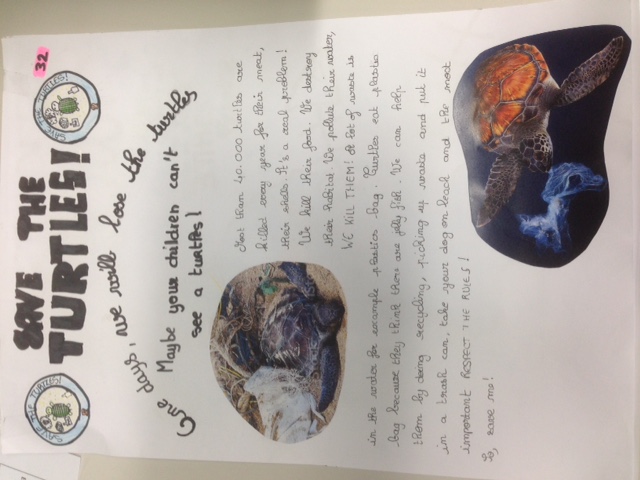 32
SAVE THE TURTLES!
SAVE THE TURTLES!
SAVE THE
TURTLES!
One days, we will lose the turtles
Maybe your children can't
see a turtles!
than 40.000 turtles are
killed every year for their meat,
their shells. It's a real problem!
We kill their food. We destroy
their habitat. We pollute their water,
WE KILL THEM! A lot of waste is
in the water for example plastics bag. Turtles eat plastic
bag because they think there are jelly fish. We can help
them by doing recycling, picking up waste and put it
in a trash can, take your dog on leach and the most
important RESPECT THE RULES!
save me!